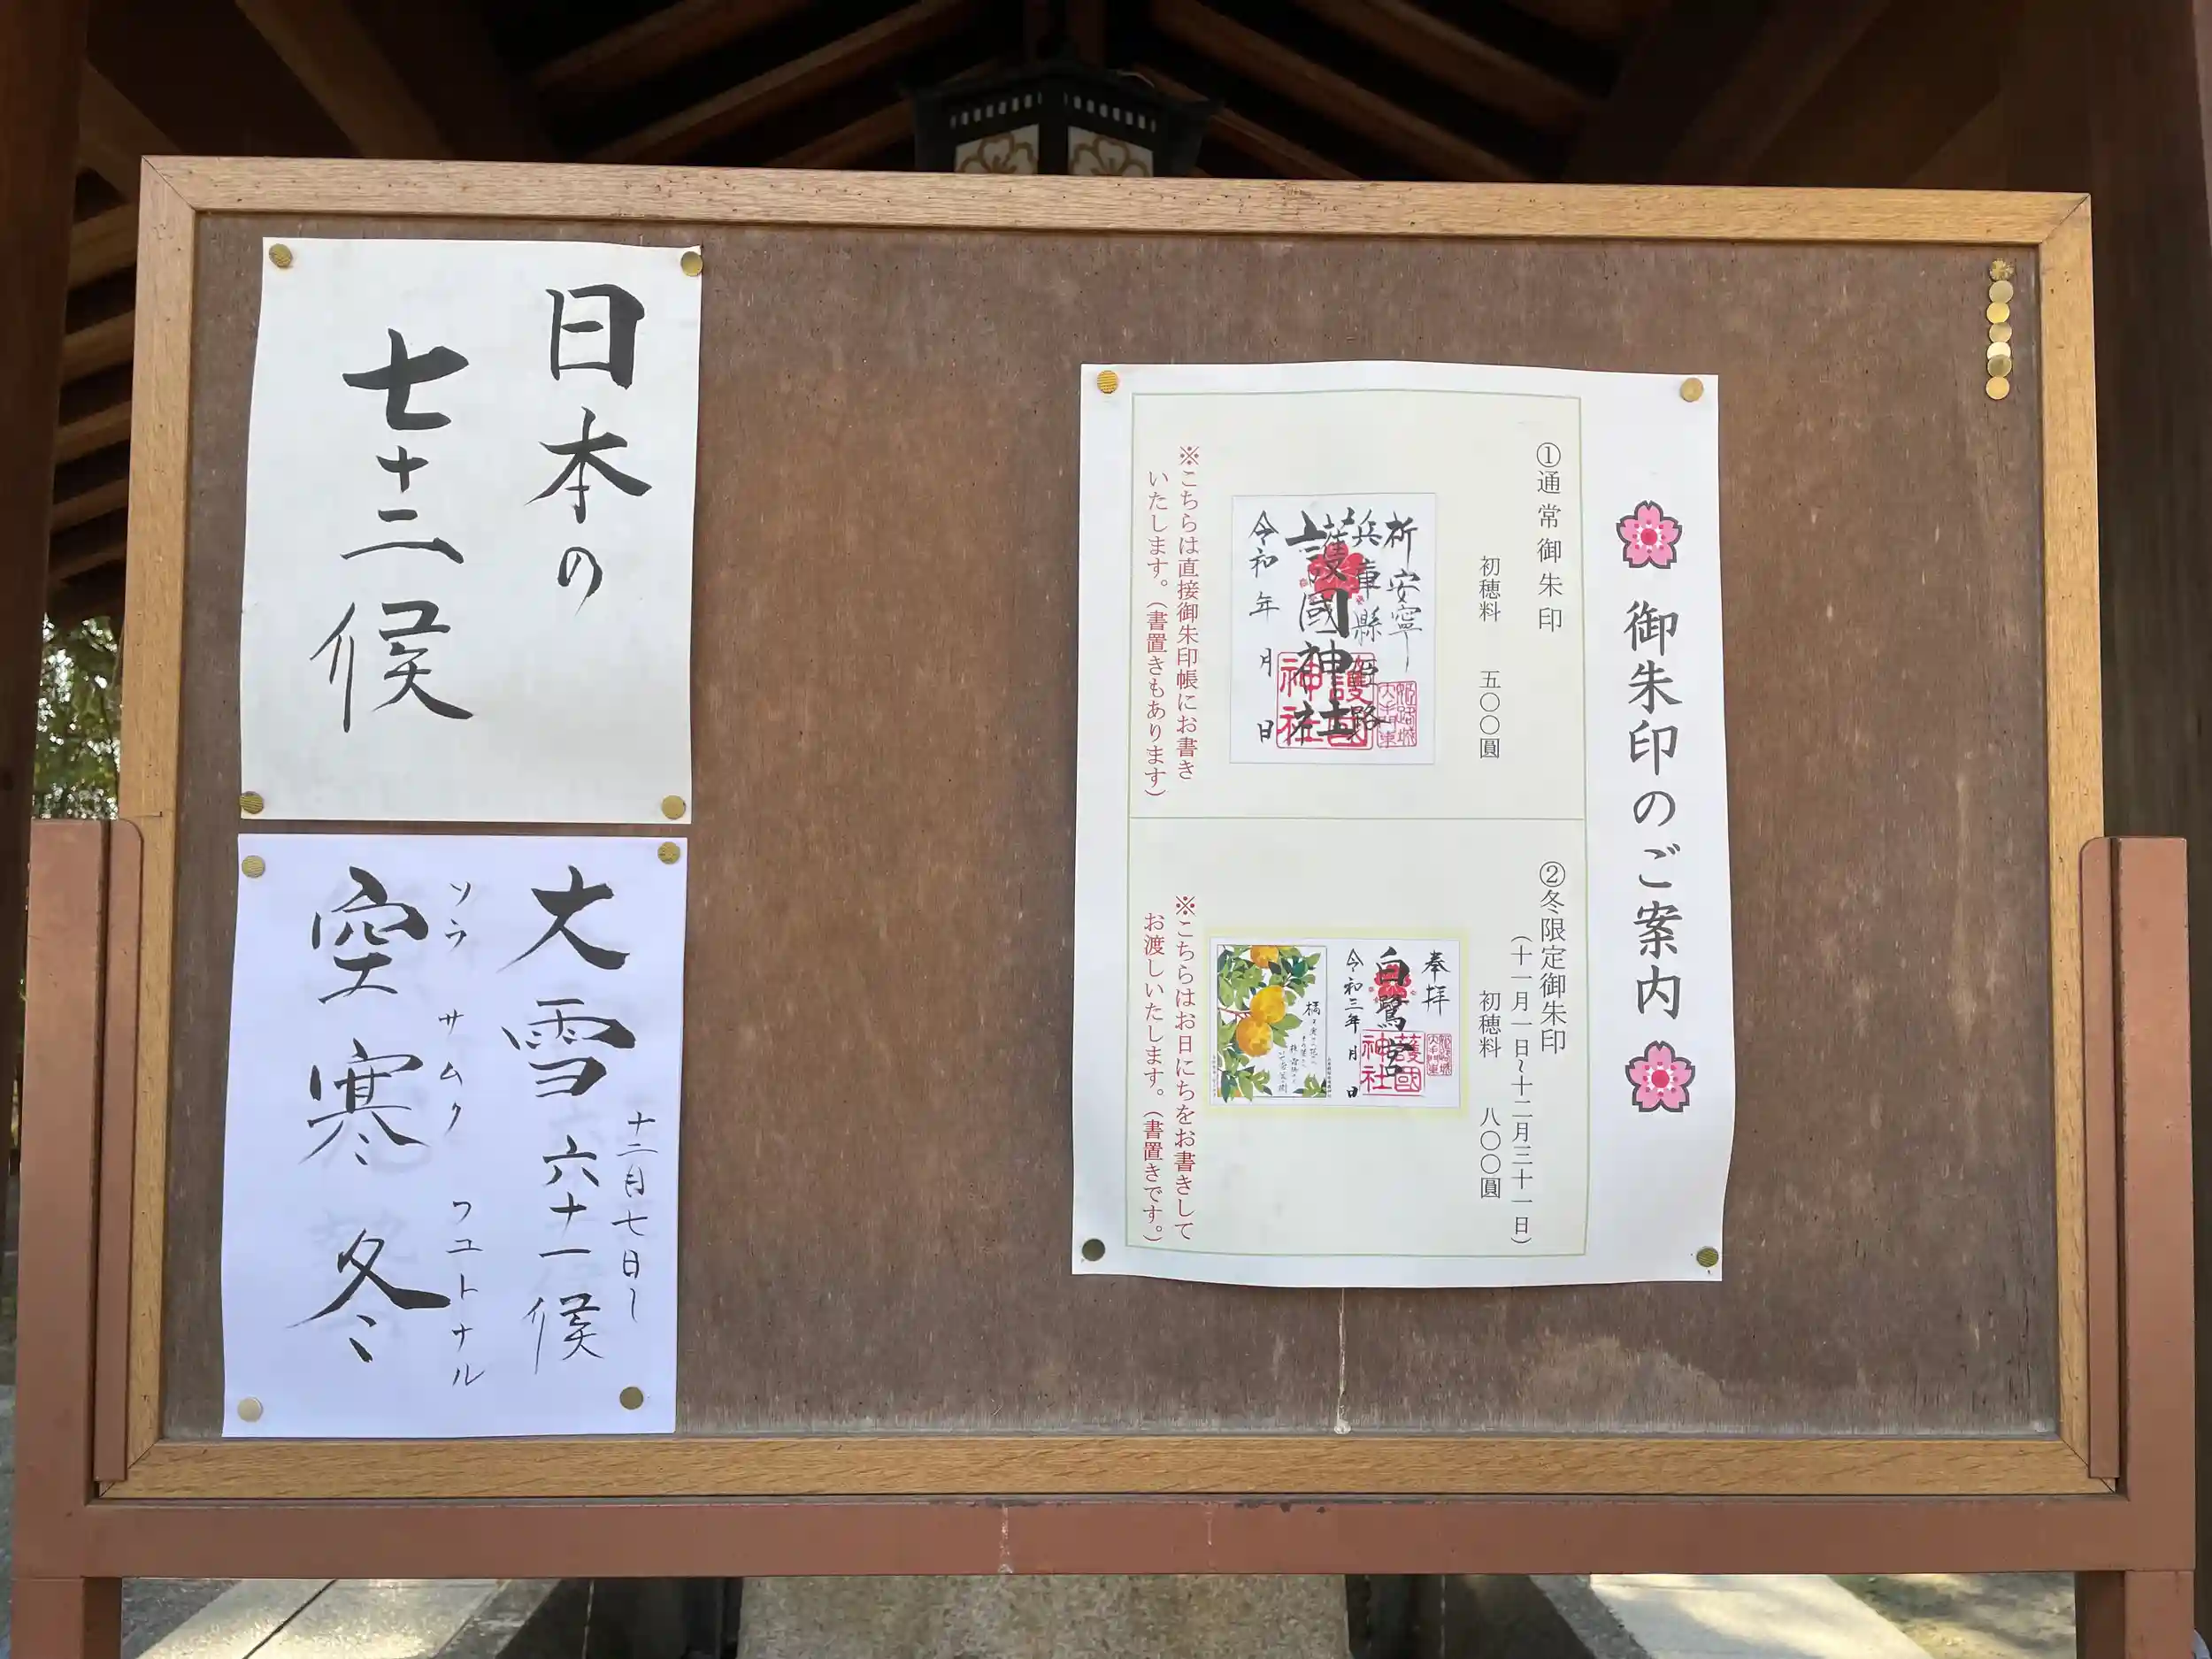 御朱印のご案内
①通常御朱印
初穂料 五〇〇圓
祈安寧
兵庫縣姫路
護國神社
令和 年 月 日
護國
神社
姫路城
※こちらは直接御朱印帳にお書き
いたします。（書置きもあります）
②冬限定御朱印
（十一月一日～十二月三十一日）
初穂料 八〇〇圓
奉拝
白鷺宮
令和三年 月 日
護國
神社
※こちらはお日にちをお書きして
お渡しいたします。（書置きです。）
日本の
七十二候
十二月七日〜
大雪 六十一候
ソラ サムク フユトナル
空寒冬